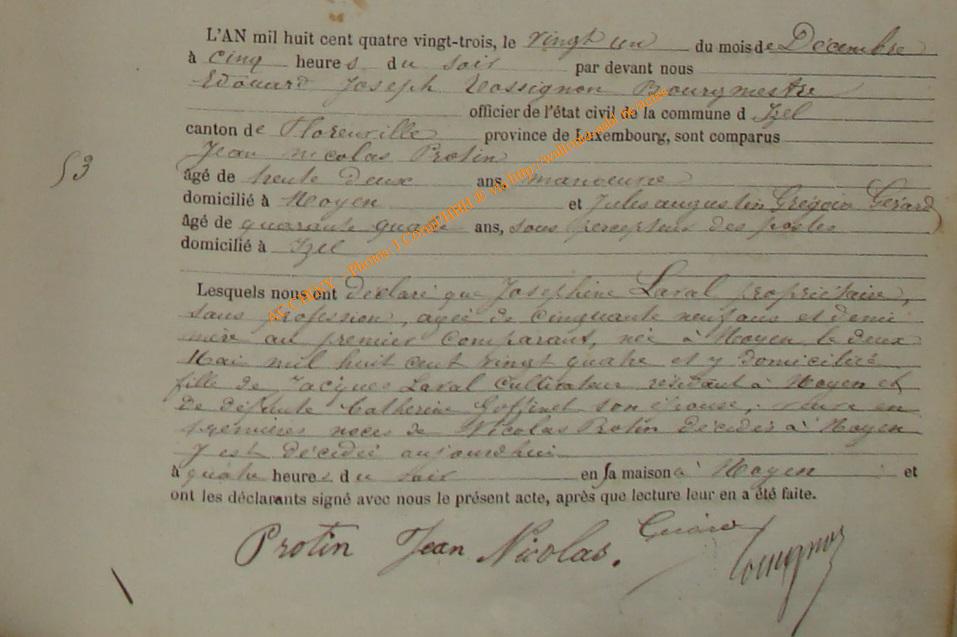 L'AN mil huit cent quatre vingt-trois, le vingt un du mois de Décembre
à cinq heures du soir par devant nous
Edouard Joseph Rossignon Bourgmestre
officier de l'état civil de la commune d Izel
canton de Florenville province de Luxembourg, sont comparus
Jean nicolas Protin
53
âgé de trente deux ans, manoeuvre
domicilié à Moyen et Jules augustin Grégoire Gérard
âgé de quarante quatre ans, sous percepteur des postes
domicilié à Izel
Lesquels nous ont déclaré que Josephine Laval propriétaire,
sans profession, agée de cinquante neuf ans et demi
mère au premier comparant, née à Moyen le deux
Mai mil huit cent vingt quatre et y domiciliée
fille de Jacques Laval cultivateur résidant à Moyen et
de défunte Catherine Goffinet son épouse, veuve en
premières noces de Nicolas Protin décédé à Moyen
y est décédée aujourdhui
à quatre heures du soir en sa maison à Moyen et
ont les déclarants signé avec nous le présent acte, après que lecture leur en a été faite.
Protin Jean Nicolas. Gérard